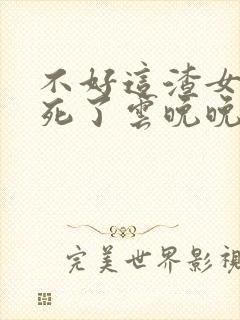 不好這渣女
死了雲晚晚
完美世界影視